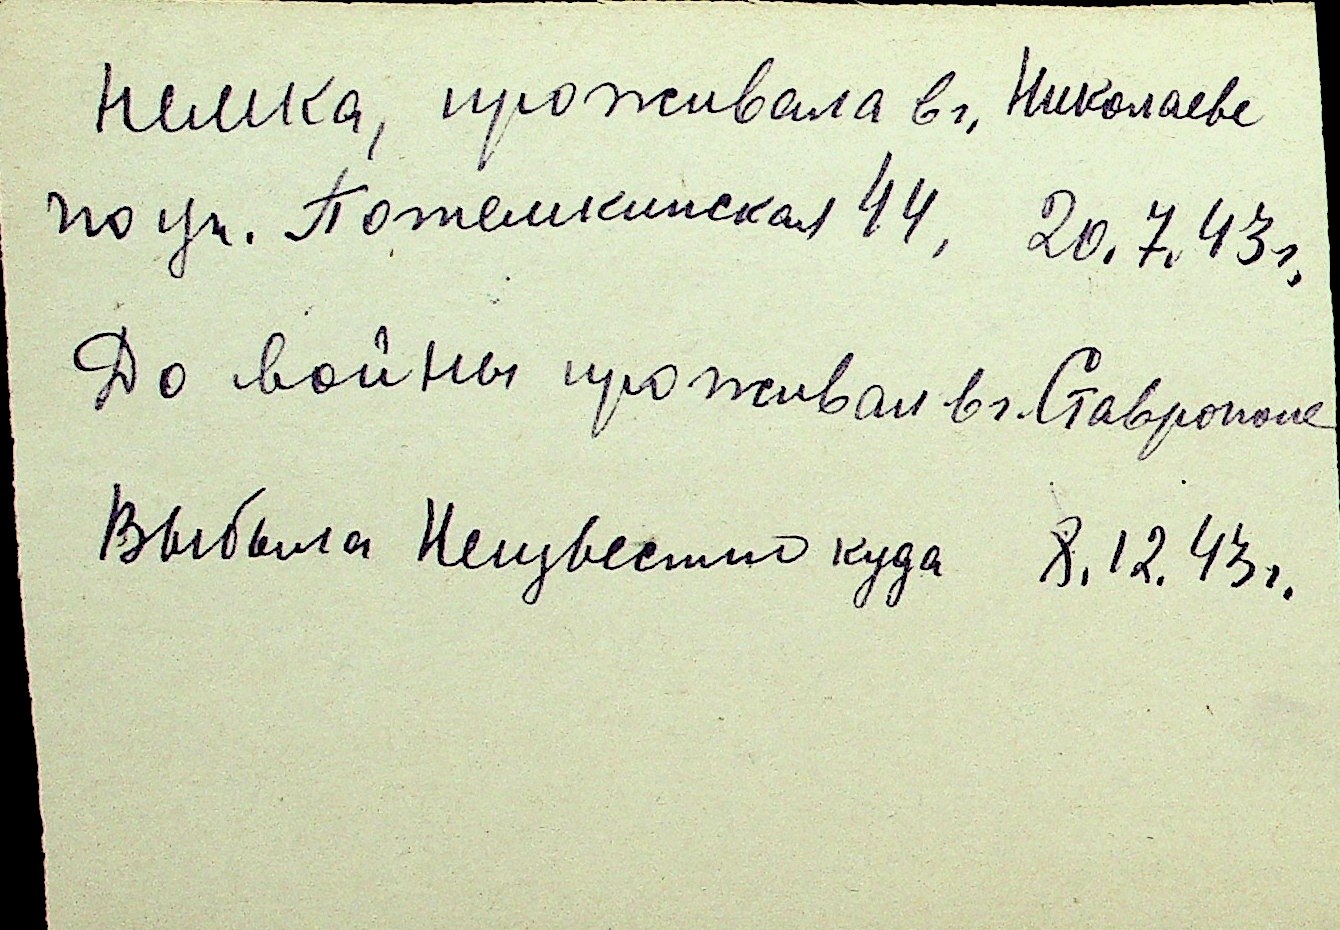 Немка, проживала в г. Николаеве
по ул. Потемкинская 44, 20.7.43г.
До войны проживал в г. Ставрополе
Выбыла Неизвестно куда 8.12.43г.